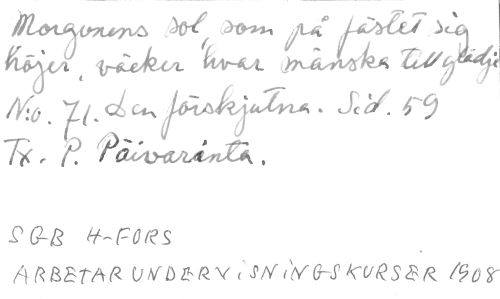 Morgonens sol, som på fästet sig
höjer, väcker hvar mänska till glädje
N:o. 71. Den förskjutna. Sid. 59
Tx. P. Päivarinta.
SGB H-FORS
ARBETARUNDERVISNINGSKURSER 1908